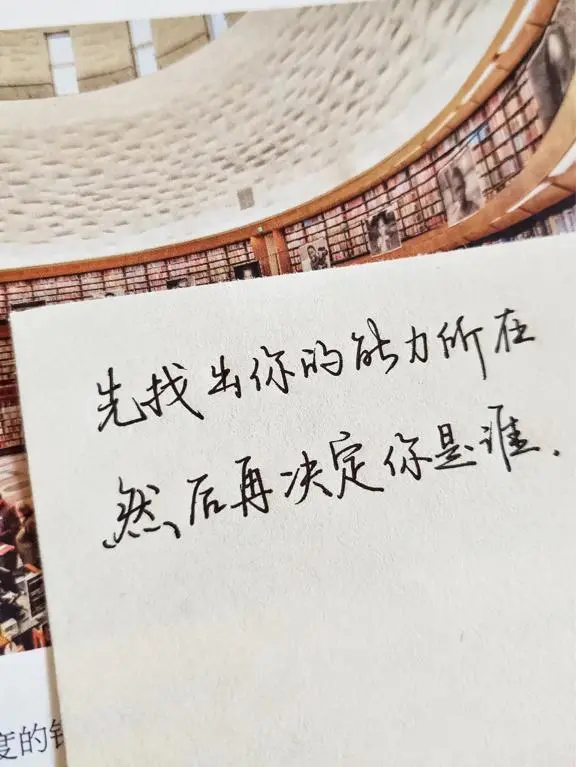 先找出你的能力所在
然后再决定你是谁.
度的